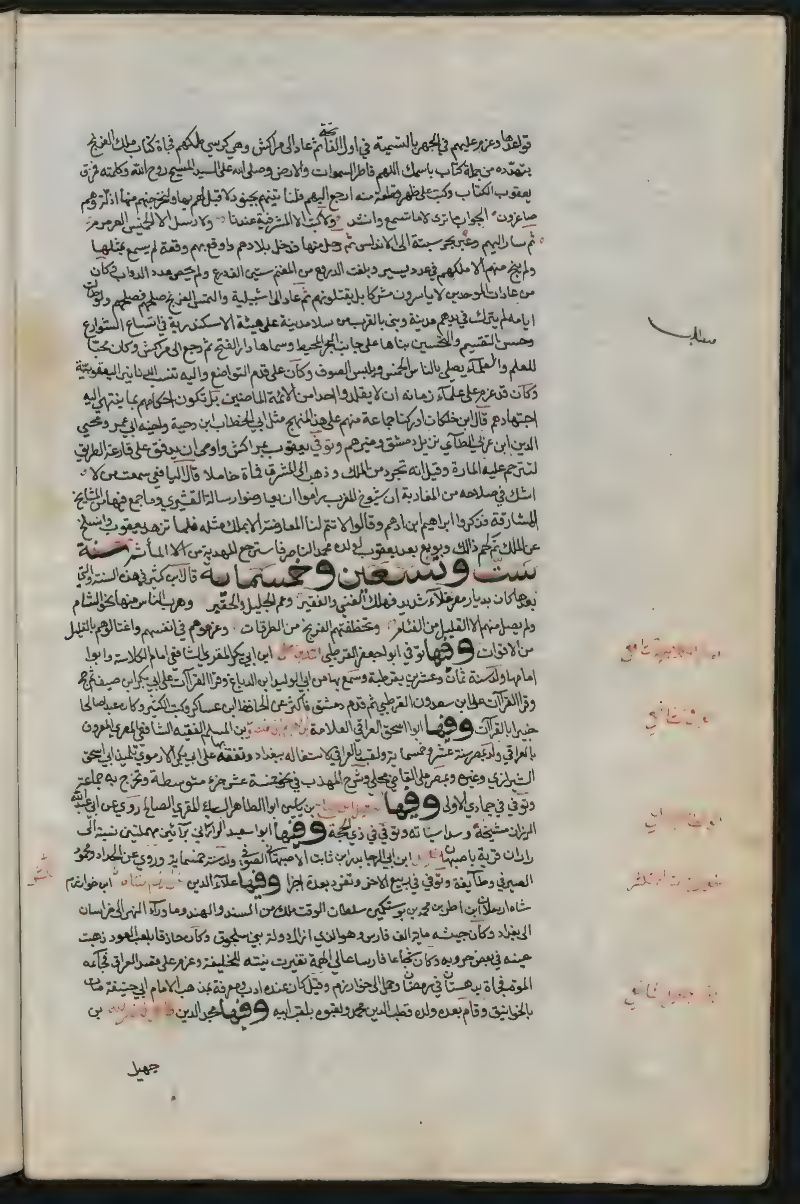 قواعدها وعزم عليهم في الجهر بالتسمية في اول الفاتحة ثم عاد الى مراكش وهي كرسي ملكهم فجاءة كتاب ملك الفرنج
يتهدده من جملة كتاب باسمك اللهم فاطر السموات والارض وصلى الله على السيد المسيح روح الله وكلمته فمزق
يعقوب الكتاب وكتب على ظهر قطعة منه ارجع اليهم فلنا تينهم بجنود لا قبل لهم بها ولنخرجنهم منها اذلة وهم
صاغرون الجواب ما ترى لا ما تسمع وانشد ولا كتب الا المشرفية عندنا ولا رسل الا الخميس العرمرم
ثم سار اليهم وعبر بحر سبتة الى الاندلس ثم رحل منها فدخل بلادهم واوقع بهم وقعة لم يسمع بمثلها
ولم ينج منهم الا ملكهم في عدد يسير وبلغت الدروع من المغنم ستين الف درع ولم يحص عدد الدواب وكان
من عادات الموحدين لا ياسرون مشركا بل يقتلونهم ثم عاد الى اشبيلية والتمس الفرنج صلحهم فصلحهم ولو طالت
ايامه لم يترك في يدهم مدينة وبنى بالقرب من سلا مدينة على هيئة الاسكندرية في اتساع الشوارع
وحسن التقسيم والتحسين بناها على جانب البحر المحيط وسماها دار الفتح ثم رجع الى مراكش وكان محبا
للعلم والعلماء يصلي بالناس الخمس ويلبس الصوف وكان على قدم التواضع واليه تنسب الدنانير اليعقوبية
وكان قد عزم على علماء زمانه ان لا يقلدوا احدا من الائمة الماضين بل تكون احكامهم بما ينتهي اليه
اجتهادهم قال ابن خلكان ادركنا جماعة منهم على هذا المنهج مثل ابي الخطاب ابن دحية واخيه ابي عمر ومحيي
الدين ابن عربي الطاي نزيل دمشق وغيرهم وتوفي يعقوب بمراكش واوصى ان يدفن على قارعة الطريق
لتترحم عليه المارة وقيل انه تجرد من الملك وذهب الى المشرق فمات خاملا قال اليافعي سمعت من لا
اشك في صلاحه من المغاربة ان شيوخ المغرب راموا ان يعارضوا رسالة القشيري وما جمع فيها من المشايخ
المشارقة فذكروا ابراهيم ابن ادهم وقالوا لا تتم لنا المعارضة الا بملك مثله فلما تزهد يعقوب وانسلخ
عن الملك تم لهم ذلك وبويع بعد يعقوب لولده محمد الناصر فاسترجع المهدية من الملثم سنة
ست وتسعين وخمسماية قال ابن كثير في هذه السنة والتي
بعدها كان بديار مصر غلاء شديد فهلك الغني والفقير وعم الجليل والحقير وهرب الناس منها نحو الشام
ولم يصل منهم الا القليل من الفئام وتخطفتهم الفرنج من الطرقات وغزوهم في انفسهم واغتالوهم بالقليل
من الاقوات وفيها توفي ابو جعفر القرطبي ابن ابي بكر المقري الشافعي امام الكلاسة وابو
امامها ولد سنة ثمان وعشرين بقرطبة وسمع بها من ابي الوليد ابن الدباغ وقرا القرآات على ابي بكر ابن صيف ثم حج
وقرا القرآات على ابن سعدون القرطبي ثم قدم دمشق فاكثر عن الحافظ ابن عساكر وكتب الكثير وكان عبدا صالحا
خبيرا بالقرآات وفيها ابو اسحق العراقي العلامة ابراهيم بن منصور بن المسلم الفقيه الشافعي المصري المعروف
بالعراقي ولد بمصر سنة عشر وخمسماية ولقب بالعراقي لاشتغاله ببغداد وتفقه بها على ابي بكر الارموي تلميذ ابي اسحق
الشيرازي وغيره وبمصر على القاضي مجلي وشرح المهذب في نحو خمسة عشر جزء متوسطة وتخرج به جماعة
وتوفي في جمادى الاولى وفيها بن ياسين ابو الطاهر المصري المقري الصالح روى عن ابي عبد الله
الرازي مشيخته وسداسياته وتوفي في ذي الحجة وفيها ابو سعيد الراراني برآئين مهملتين نسبة الى
راران قرية باصبهان ابن ابي الرجا بدر ابن ثابت الاصبهاني الصوفي ولد سنة خمسماية وروى عن الحداد ومحمود
الصيرفي وطايفة وتوفي في ربيع الاخر وتفرد بعدة اجزا وفيها علاء الدين خوارزم شاه ابن خوارزم
شاه ارسلان ابن اطز بن محمد بن نوشتكين سلطان الوقت ملك من السند والهند وما وراء النهر الى خراسان
الى بغداد وكان جيشه ماية الف فارس وهو الذي ازال دولة بني سلجوق وكان حاذقا بلعب العود ذهبت
عينه في بعض حروبه وكان شجاعا فارسا عالي الهمة تغيرت نيته للخليفة وعزم على قصد العراق فجاءه
الموت فجاءة بدهستان في رمضان وحمل الى خوارزم وقيل كان عنده ادب ومعرفة بمذهب الامام ابي حنيفة مات
بالخوانيق وقام بعده ولده قطب الدين محمد ولقبوه بلقب ابيه وفيها مجد الدين بن
جهبل
مطلب